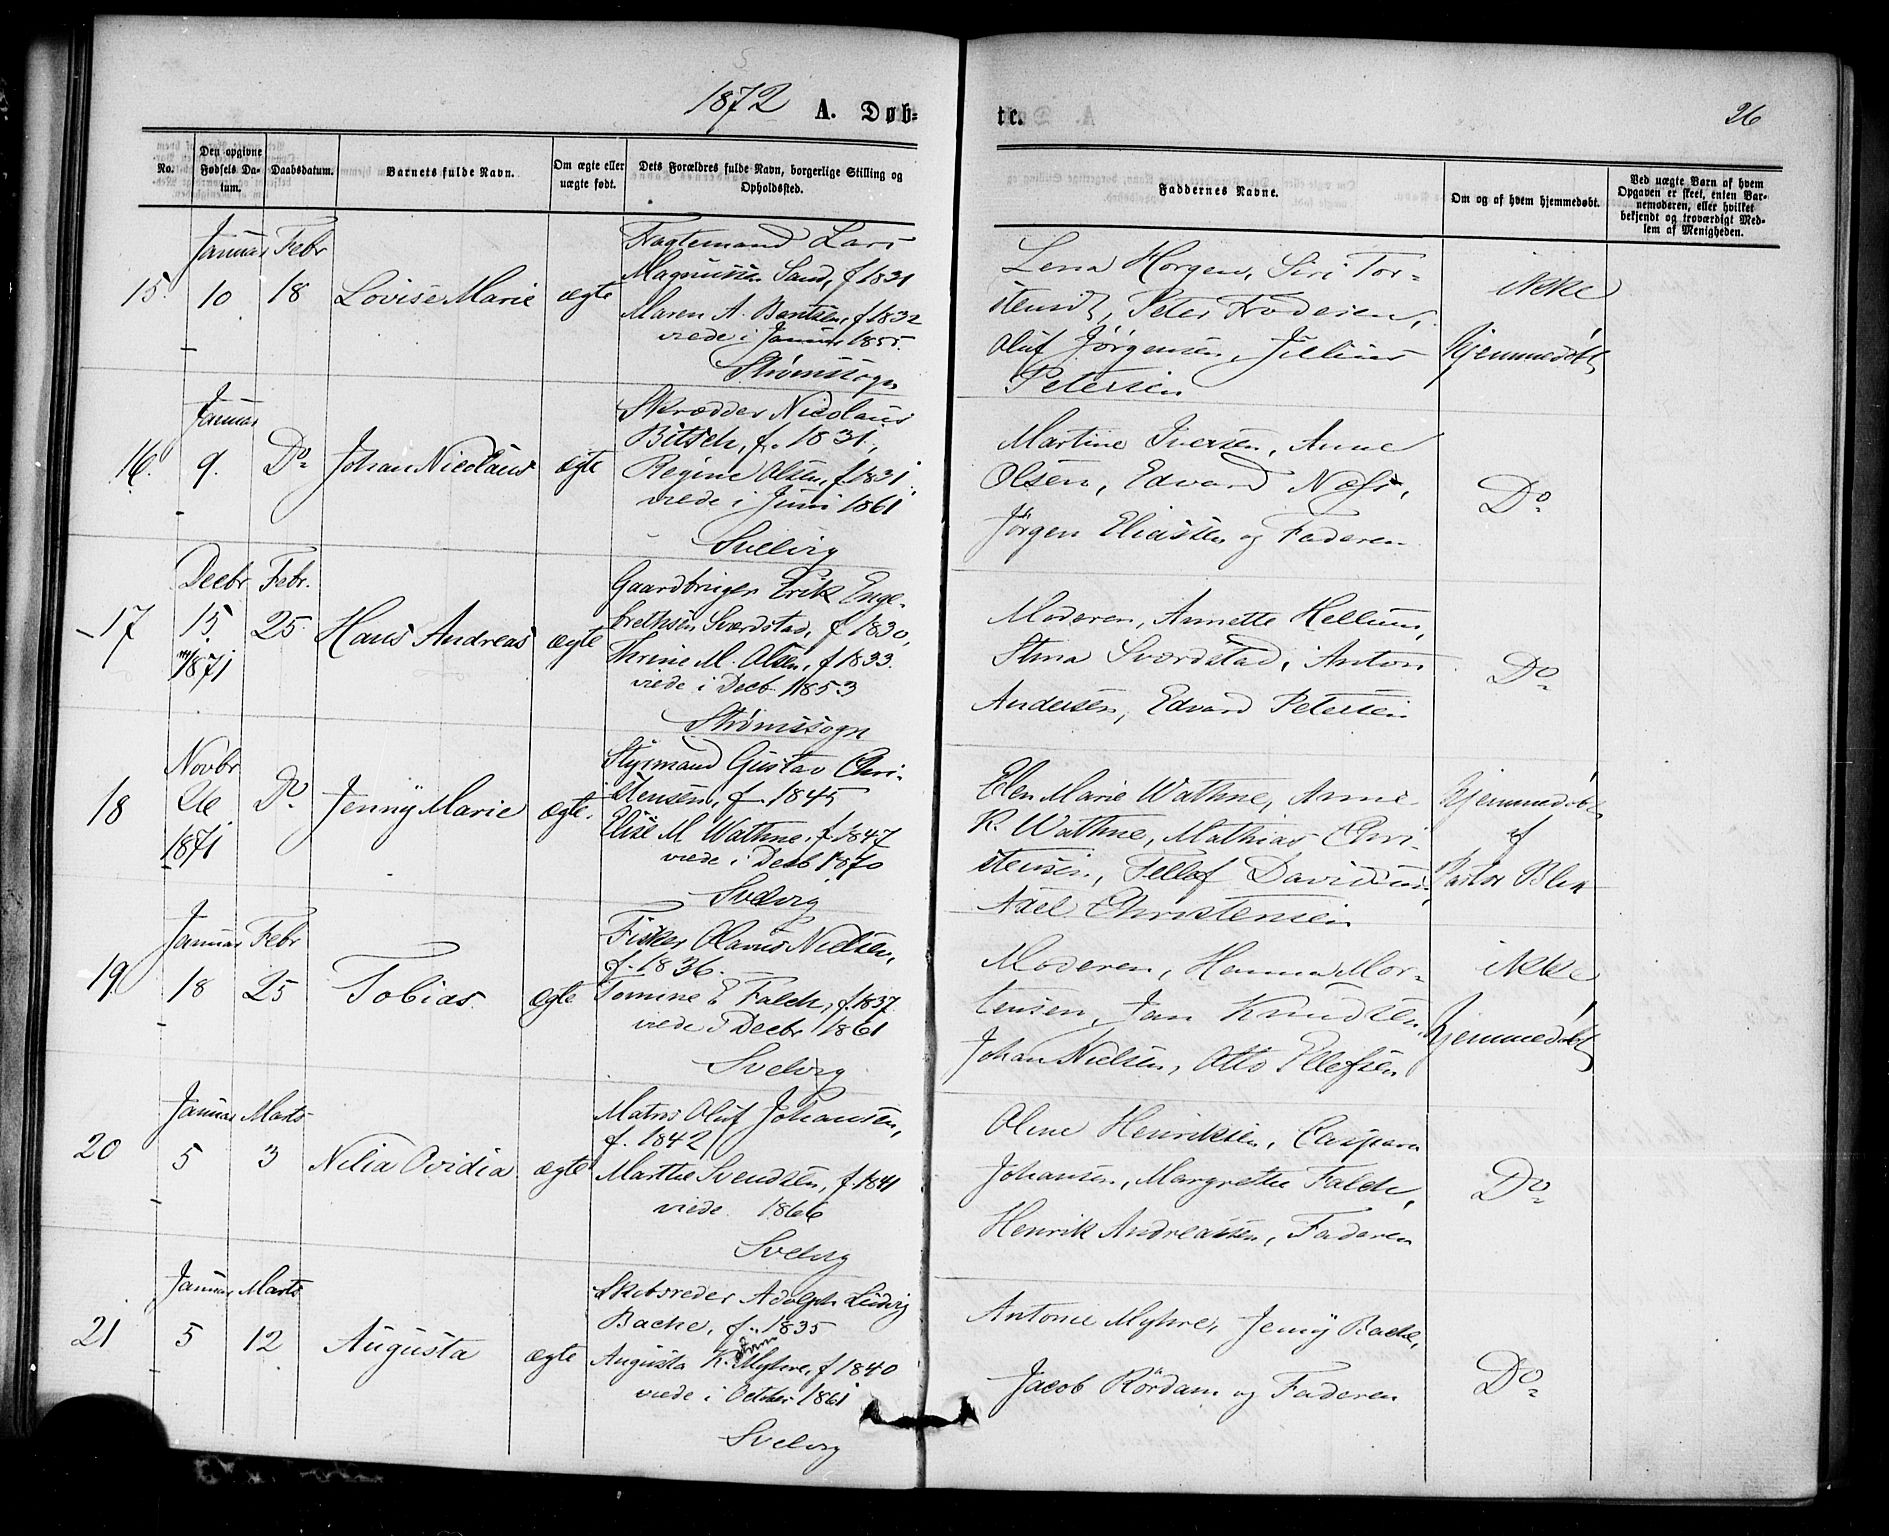 1872 A. Døb-
te.
26
No.
Den opgivne Fødsels Da-
tum.
Daabsdatum.
Barnets fulde Navn.
Om ægte eller
uægte født.
Dets Forældres fulde Navn, borgerlige Stilling og
Opholdssted.
Faddernes Navne.
Om og af hvem hjemmedøbt.
Ved uægte Børn af hvem
Opgaven er skeet, enten Bar-
nemoderen, eller hvilket
bekjendt og troværdigt Med-
lem af Menigheden.
15.
Januar
10
Febr
18
Lovise Marie
ægte
Lars
Magnussen Sand, f 1831
Maren A. Bentsen, f 1832
viede i Januar 1855.
Strømssogn
Lena Horgen, Siri Tor-
stensdt, Peter
Oluf Jørgensen, Julius
Petersen
ikke
hjemmedøbt
16.
Januar
9.
Do
Johan Nicolaus
ægte
Skrædder Nicolaus
Bitsch, f. 1831,
Regine Olsen, f. 1831,
viede i Juni 1861
Svelvig
Martine Iversen, Anne
Olsen, Edvard Næss,
Jørgen Eliassen og Faderen
Do
17
Decbr
15
1871
Febr.
25
Hans Andreas
ægte
Gaardbruger Erik Enge-
brethsen Sværdstad, f 1830,
Thrine M. Olsen, f 1833.
viede i Decb. 1853
Strømssogn
Moderen, Annette Hellum,
Stina Sværdstad, Anton
Andersen, Edvard Petersen
Do
18
Novbr
26
1871
Do
Jenny Marie
ægte
Styrmand Gustav Chri-
stensen, f. 1845
Elise M Wathne, f. 1847
viede i Decb 1870
Svelvig
Elen Marie Wathne, Anne
K. Wathne, Mathias Chri-
stensen, Tellef Davidsen,
Axel Christensen
hjemmedøbt
af
Pastor Blix
19
Januar
18
Febr
25
Tobias
ægte
Fisker Olaus Nielsen,
f. 1836.
Tomine E Falch, f. 1837
viede i Decbr 1861
Svelvig
Moderen, Hanna Mor-
tensen, Jan Knudsen
Johan Nielsen, Otto Ellefsen
ikke
hjemmedøbt
20
Januar
5
Marts
3
Nilia Ovidia
ægte
Matros Oluf Johansen,
f. 1842
Marthe Svendsen, f. 1841
viede 1866
Svelvig
Oline Henriksen, Caspara
Johansen, Margrethe Falch,
Henrik Andreassen, Faderen
Do
21
Januar
5
Marts
12
Augusta
ægte
Skibsreder Adolph Ludvig
Bache, f. 1835
Augusta K. Myhre, f 1840
viede i October 1861
Svelvig
Antonie Myhre, Jenny Bache,
Jacob Rördam og Faderen
Do